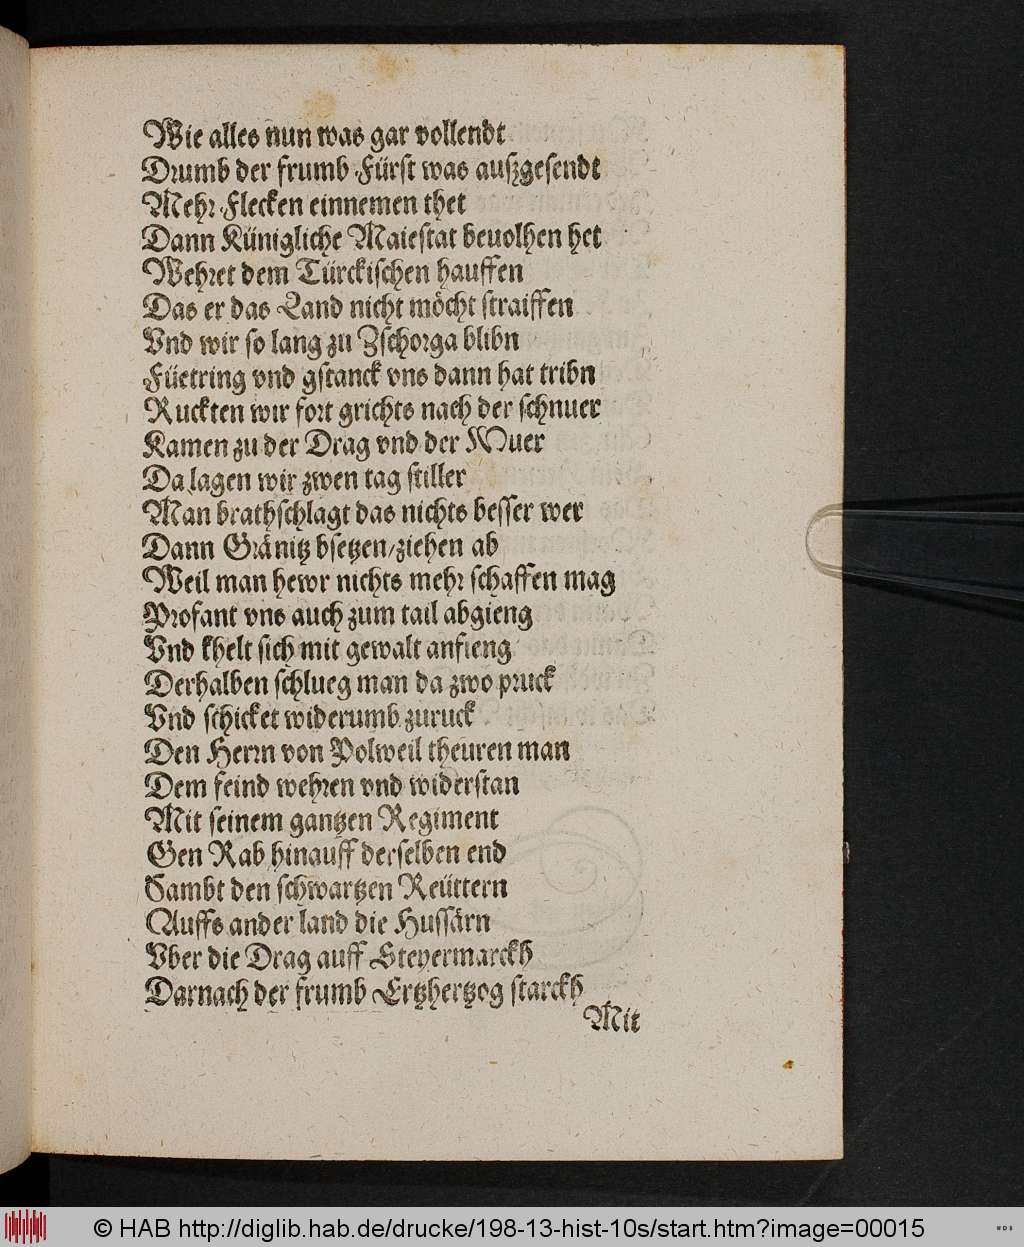 Wie alles nun was gar vollendt
Drumb der frumb Fürst was außgesendt
Mehr Flecken einnemen thet
Dann Künigliche Maiestat beuolhen het
Wehret dem Türckischen hauffen
Das er das Land nicht möcht straiffen
Vnd wir so lang zu Zschorga blibn
Füetring vnd gstanck vns dann hat tribn
Ruckten wir fort grichts nach der schnuer
Kamen zu der Drag vnd der Muer
Da lagen wir zwen tag stiller
Man brathschlagt das nichts besser wer
Dann Gränitz bsetzen/ziehen ab
Weil man hewr nichts mehr schaffen mag
Profant vns auch zum tail abgieng
Vnd khelt sich mit gewalt anfieng
Derhalben schlueg man da zwo pruck
Vnd schicket widerumb zuruck
Den Herrn von Polweil theuren man
Dem feind wehren vnd widerstan
Mit seinem gantzen Regiment
Gen Rab hinauff derselben end
Sambt den schwartzen Reüttern
Auffs ander land die Hussärn
Vber die Drag auff Steyermarckh
Darnach der frumb Ertzhertzog starckh
Mit
© HAB http://diglib.hab.de/drucke/198-13-hist-10s/start.htm?image=00015